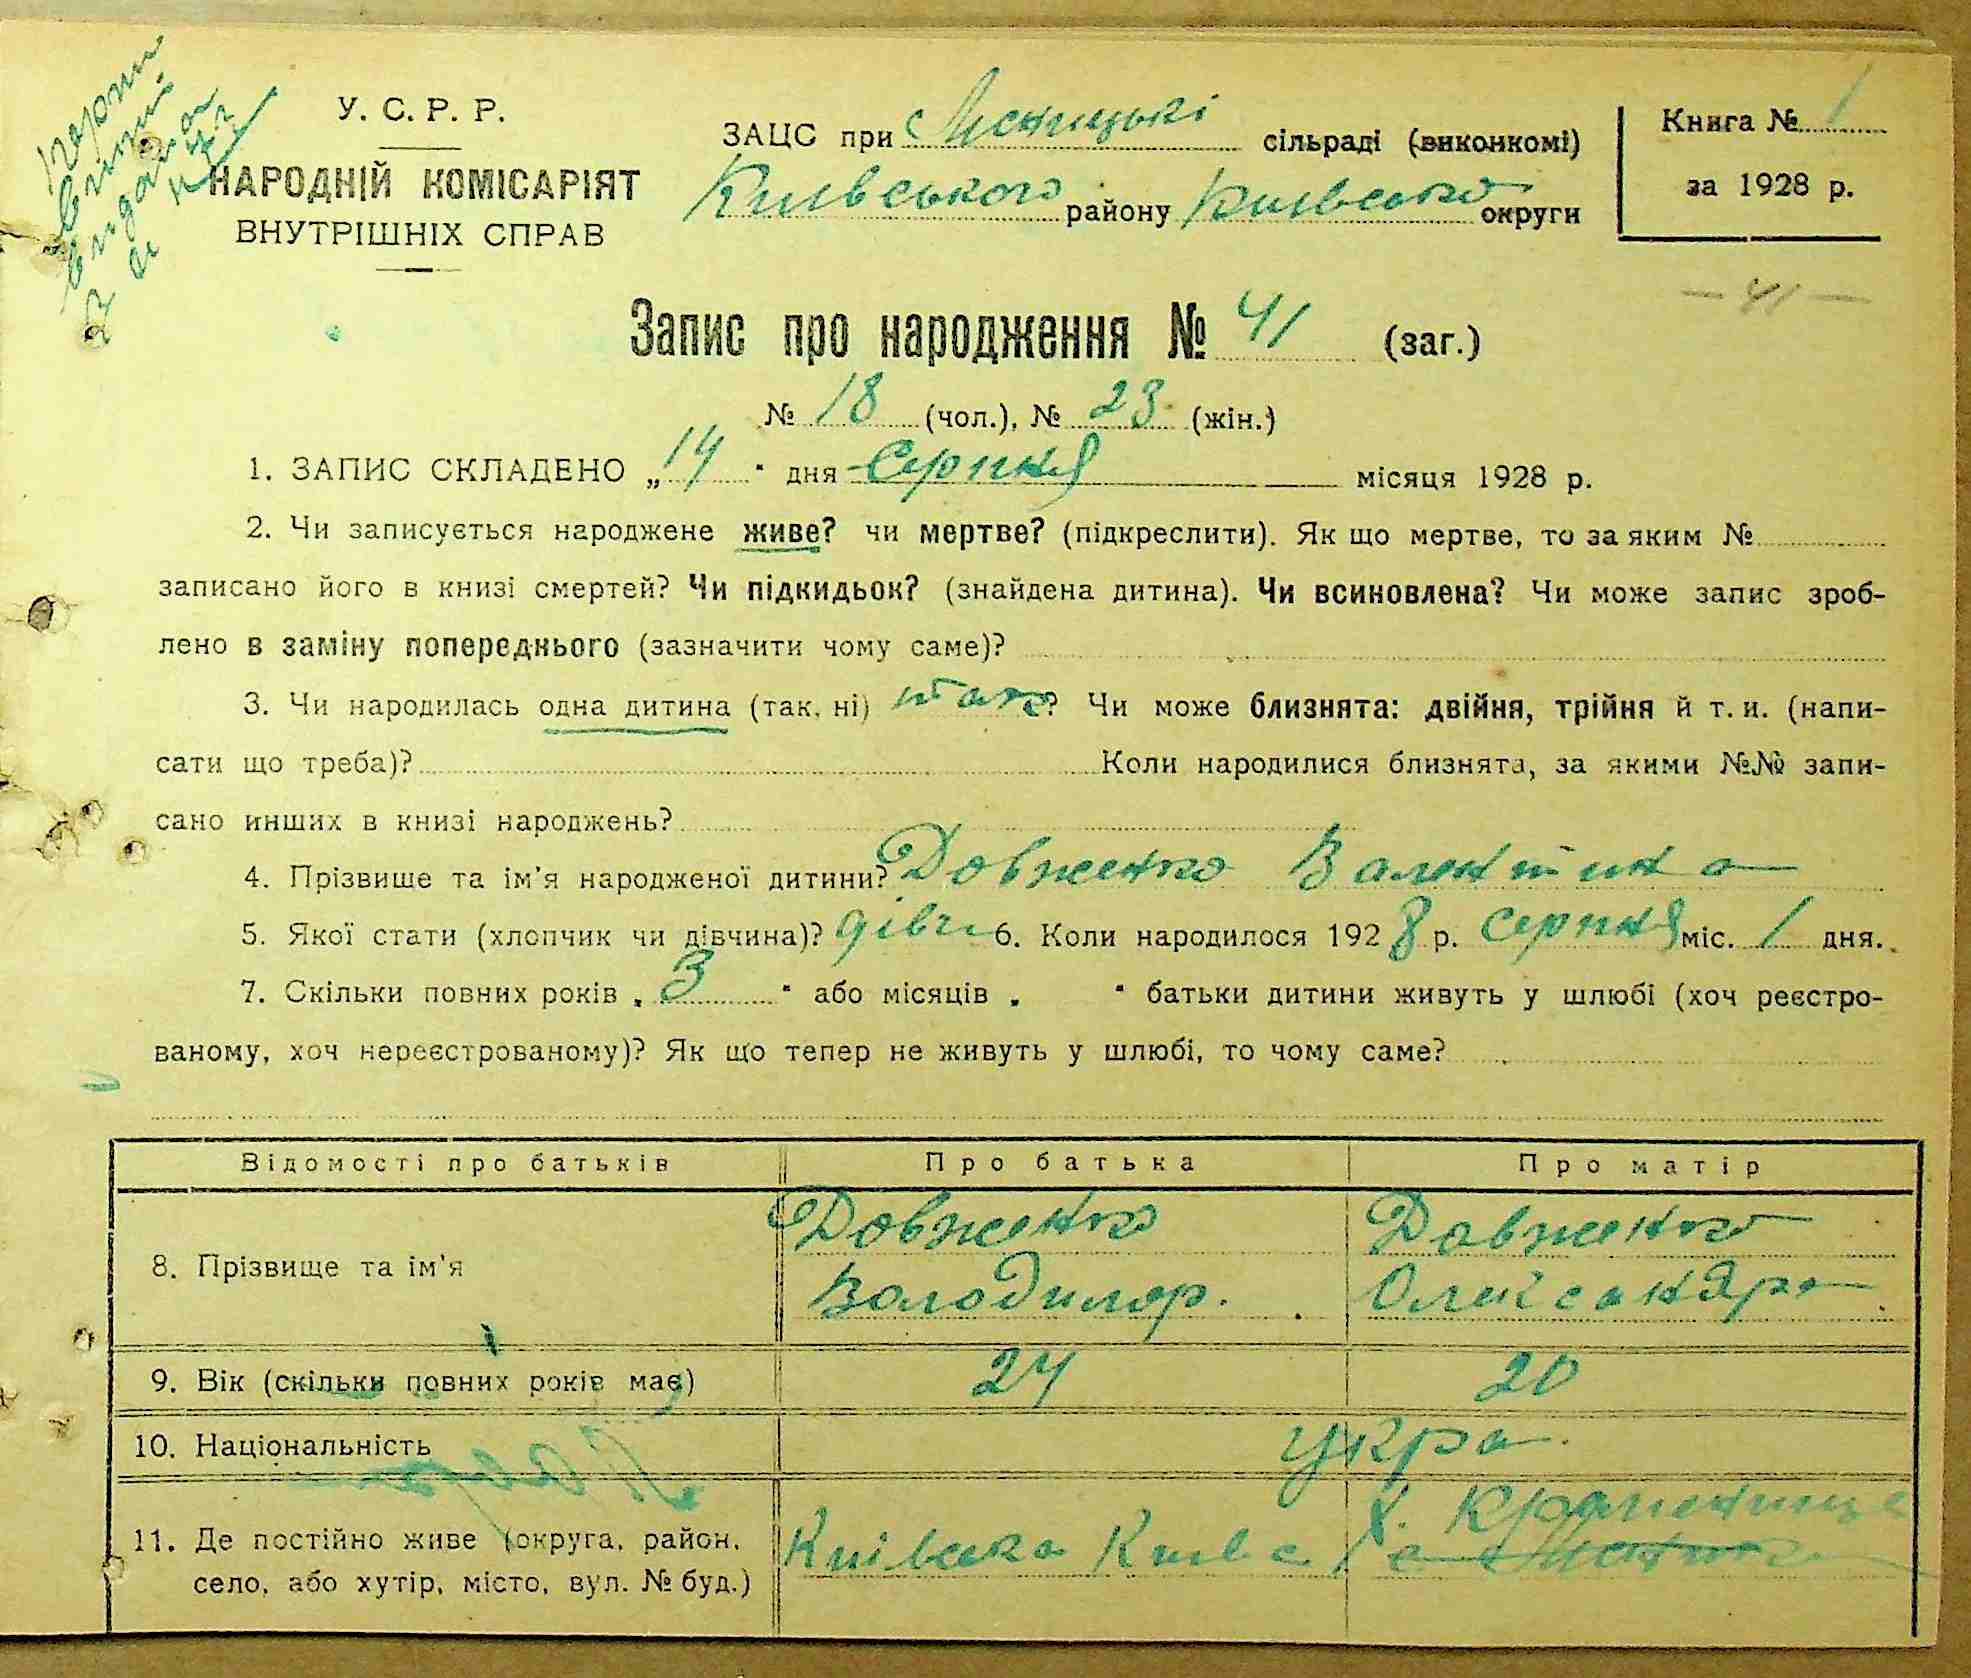 У. С. Р. Р.
НАРОДНІЙ КОМІСАРІЯТ
ВНУТРІШНІХ СПРАВ
ЗАЦС при сільраді (виконкомі)
Київського району Київсько округи
Книга № 1
за 1928 р.
— 41 —
Запис про народження № 41 (заг.)
№ 18 (чол.), № 23 (жін.)
1. ЗАПИС СКЛАДЕНО „14" дня Серпня місяця 1928 р.
2. Чи записується народжене живе? чи мертве? (підкреслити). Як що мертве, то за яким №
записано його в книзі смертей? Чи підкидьок? (знайдена дитина). Чи всиновлена? Чи може запис зроб-
лено в заміну попереднього (зазначити чому саме)?
3. Чи народилась одна дитина (так, ні) так? Чи може близнята: двійня, трійня й т. и. (напи-
сати що треба)? Коли народилися близнята, за якими №№ запи-
сано инших в книзі народжень?
4. Прізвище та ім'я народженої дитини? Довженко Валентина
5. Якої стати (хлопчик чи дівчина)? дівч 6. Коли народилося 1928 р. Серпня міс. 1 дня.
7. Скільки повних років „3" або місяців „ " батьки дитини живуть у шлюбі (хоч реєстро-
ваному, хоч нереєстрованому)? Як що тепер не живуть у шлюбі, то чому саме?
Відомості про батьків Про батька Про матір
8. Прізвище та ім'я Довженко Володимир. Довженко Олександра
9. Вік (скільки повних років має) 24 20
10. Національність укра.
11. Де постійно живе (округа, район,
село, або хутір, місто, вул. № буд.) Київська Київс